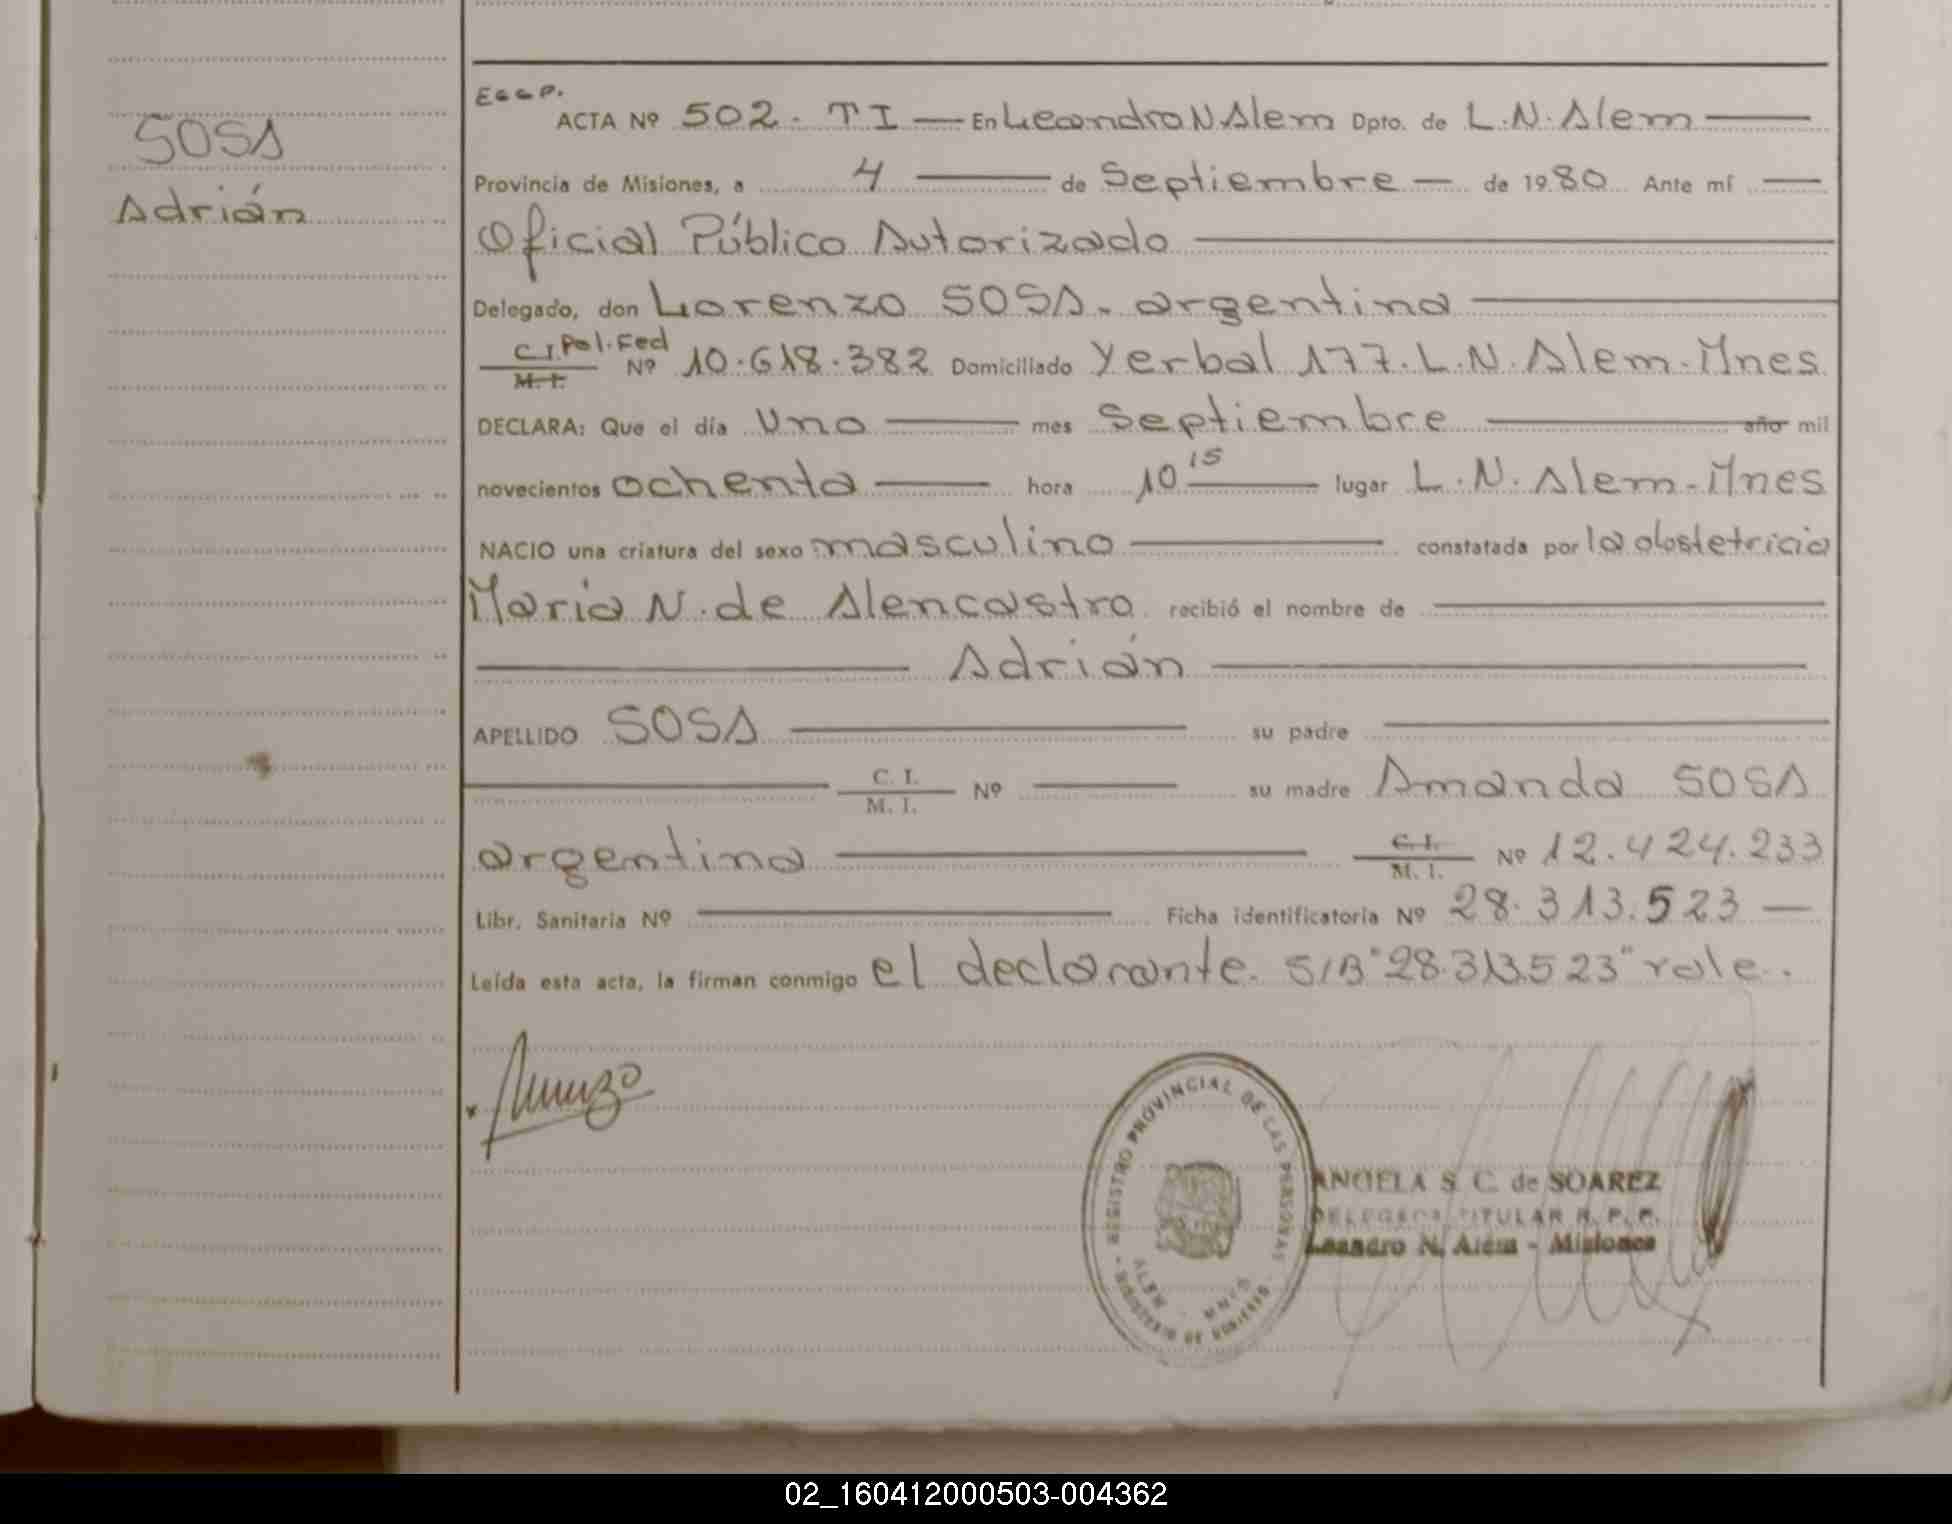 SOSA
Adrián
ECCP.
ACTA Nº 502. TI — En Leandro N Alem Dpto. de L.N. Alem —
Provincia de Misiones, a 4 — de Septiembre — de 1980 Ante mí —
Oficial Público Autorizado —
Delegado, don Lorenzo SOSA. argentino —
C.I. Pol. Fed
M. I. Nº 10.618.382 Domiciliado Yerbal 177. L.N. Alem - Mnes
DECLARA: Que el día Uno — mes Septiembre — año mil
novecientos ochenta — hora 10 15 — lugar L.N. Alem - Mnes
NACIO una criatura del sexo masculino — constatada por la obstetricia
Maria N. de Alencastro recibió el nombre de —
— Adrián —
APELLIDO SOSA — su padre —
— C. I.
M. I. Nº — su madre Amanda SOSA
argentina — C. I.
M. I. Nº 12.424.233
Libr. Sanitaria Nº — Ficha identificatoria Nº 28.313.523 —
Leída esta acta, la firman conmigo el declarante. S/B "28.313.523" vale.
REGISTRO PROVINCIAL DE LAS PERSONAS
ALEM - MNES
MINISTERIO DE GOBIERNO
ANGELA S. C. de SOAREZ
DELEGADA TITULAR R. P. P.
Leandro N. Alem - Misiones
02_160412000503-004362